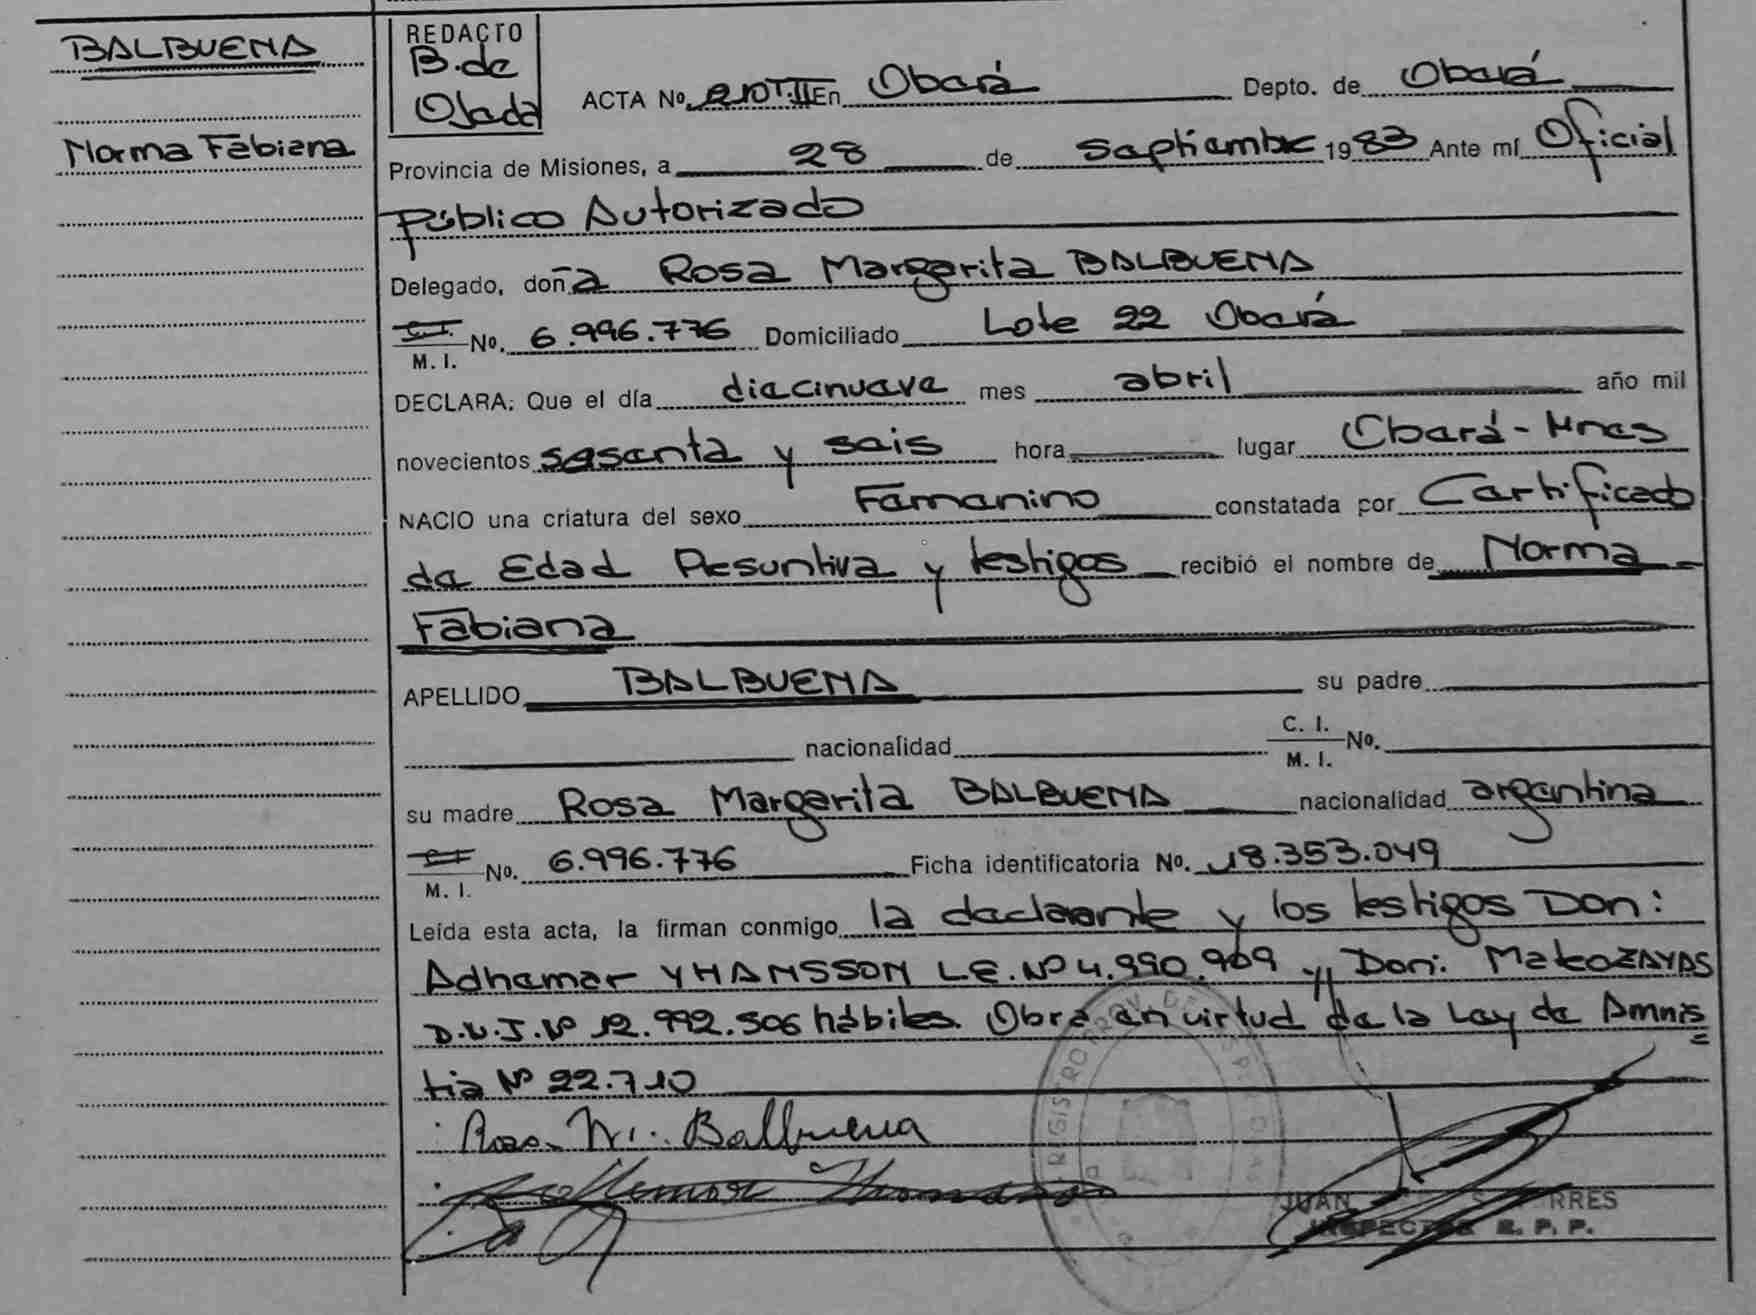 BALBUENA
Norma Fabiana
REDACTO
B. de
Ojeda
ACTA No. 210 T.II En Oberá Depto. de Oberá
Provincia de Misiones, a 28 de Septiembre 1983 Ante mí Oficial
Público Autorizado
Delegado, doña Rosa Margarita BALBUENA
C. I. M. I. No. 6.996.776 Domiciliado Lote 22 Oberá
DECLARA: Que el día diecinueve mes abril año mil
novecientos sesenta y seis hora lugar Oberá - Mnes
NACIO una criatura del sexo Femenino constatada por Certificado
de Edad Presuntiva y testigos recibió el nombre de Norma
Fabiana
APELLIDO BALBUENA su padre
nacionalidad C. I. M. I. No.
su madre Rosa Margarita BALBUENA nacionalidad argentina
C. I. M. I. No. 6.996.776 Ficha identificatoria No. 18.353.049
Leída esta acta, la firman conmigo la declarante y los testigos Don:
Adhemar YHANSSON L.E. Nº 4.990.969 y Don: Mateo ZAYAS
D.N.I. Nº 12.992.506 hábiles. Obra en virtud de la Ley de Amnis
tia Nº 22.710
Rosa M. Balbuena
REGISTRO
JUAN RRES
INSPECTOR R. P. P.